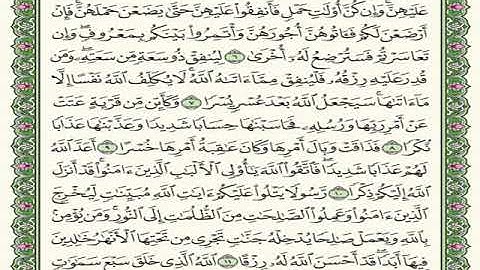 عَلَيۡهِنَّۚ وَإِن كُنَّ أُوْلَٰتِ حَمۡلٖ فَأَنفِقُواْ عَلَيۡهِنَّ حَتَّىٰ يَضَعۡنَ حَمۡلَهُنَّۚ فَإِنۡ
أَرۡضَعۡنَ لَكُمۡ فَـَٔاتُوهُنَّ أُجُورَهُنَّ وَأۡتَمِرُواْ بَيۡنَكُم بِمَعۡرُوفٖۖ وَإِن
تَعَاسَرۡتُمۡ فَسَتُرۡضِعُ لَهُۥٓ أُخۡرَىٰ ٦ لِيُنفِقۡ ذُو سَعَةٖ مِّن سَعَتِهِۦۖ وَمَن
قُدِرَ عَلَيۡهِ رِزۡقُهُۥ فَلۡيُنفِقۡ مِمَّآ ءَاتَىٰهُ ٱللَّهُۚ لَا يُكَلِّفُ ٱللَّهُ نَفۡسًا إِلَّا
مَآ ءَاتَىٰهَاۚ سَيَجۡعَلُ ٱللَّهُ بَعۡدَ عُسۡرٖ يُسۡرٗا ٧ وَكَأَيِّن مِّن قَرۡيَةٍ عَتَتۡ
عَنۡ أَمۡرِ رَبِّهَا وَرُسُلِهِۦ فَحَاسَبۡنَٰهَا حِسَابٗا شَدِيدٗا وَعَذَّبۡنَٰهَا عَذَابٗا
نُّكۡرٗا ٨ فَذَاقَتۡ وَبَالَ أَمۡرِهَا وَكَانَ عَٰقِبَةُ أَمۡرِهَا خُسۡرًا ٩ أَعَدَّ ٱللَّهُ
لَهُمۡ عَذَابٗا شَدِيدٗاۖ فَٱتَّقُواْ ٱللَّهَ يَٰٓأُوْلِي ٱلۡأَلۡبَٰبِ ٱلَّذِينَ ءَامَنُواْۚ قَدۡ أَنزَلَ
ٱللَّهُ إِلَيۡكُمۡ ذِكۡرٗا ١٠ رَّسُولٗا يَتۡلُواْ عَلَيۡكُمۡ ءَايَٰتِ ٱللَّهِ مُبَيِّنَٰتٖ لِّيُخۡرِجَ
ٱلَّذِينَ ءَامَنُواْ وَعَمِلُواْ ٱلصَّٰلِحَٰتِ مِنَ ٱلظُّلُمَٰتِ إِلَى ٱلنُّورِۚ وَمَن يُؤۡمِنۢ
بِٱللَّهِ وَيَعۡمَلۡ صَٰلِحٗا يُدۡخِلۡهُ جَنَّٰتٖ تَجۡرِي مِن تَحۡتِهَا ٱلۡأَنۡهَٰرُ خَٰلِدِينَ
فِيهَآ أَبَدٗاۖ قَدۡ أَحۡسَنَ ٱللَّهُ لَهُۥ رِزۡقًا ١١ ٱللَّهُ ٱلَّذِي خَلَقَ سَبۡعَ سَمَٰوَٰتٖ